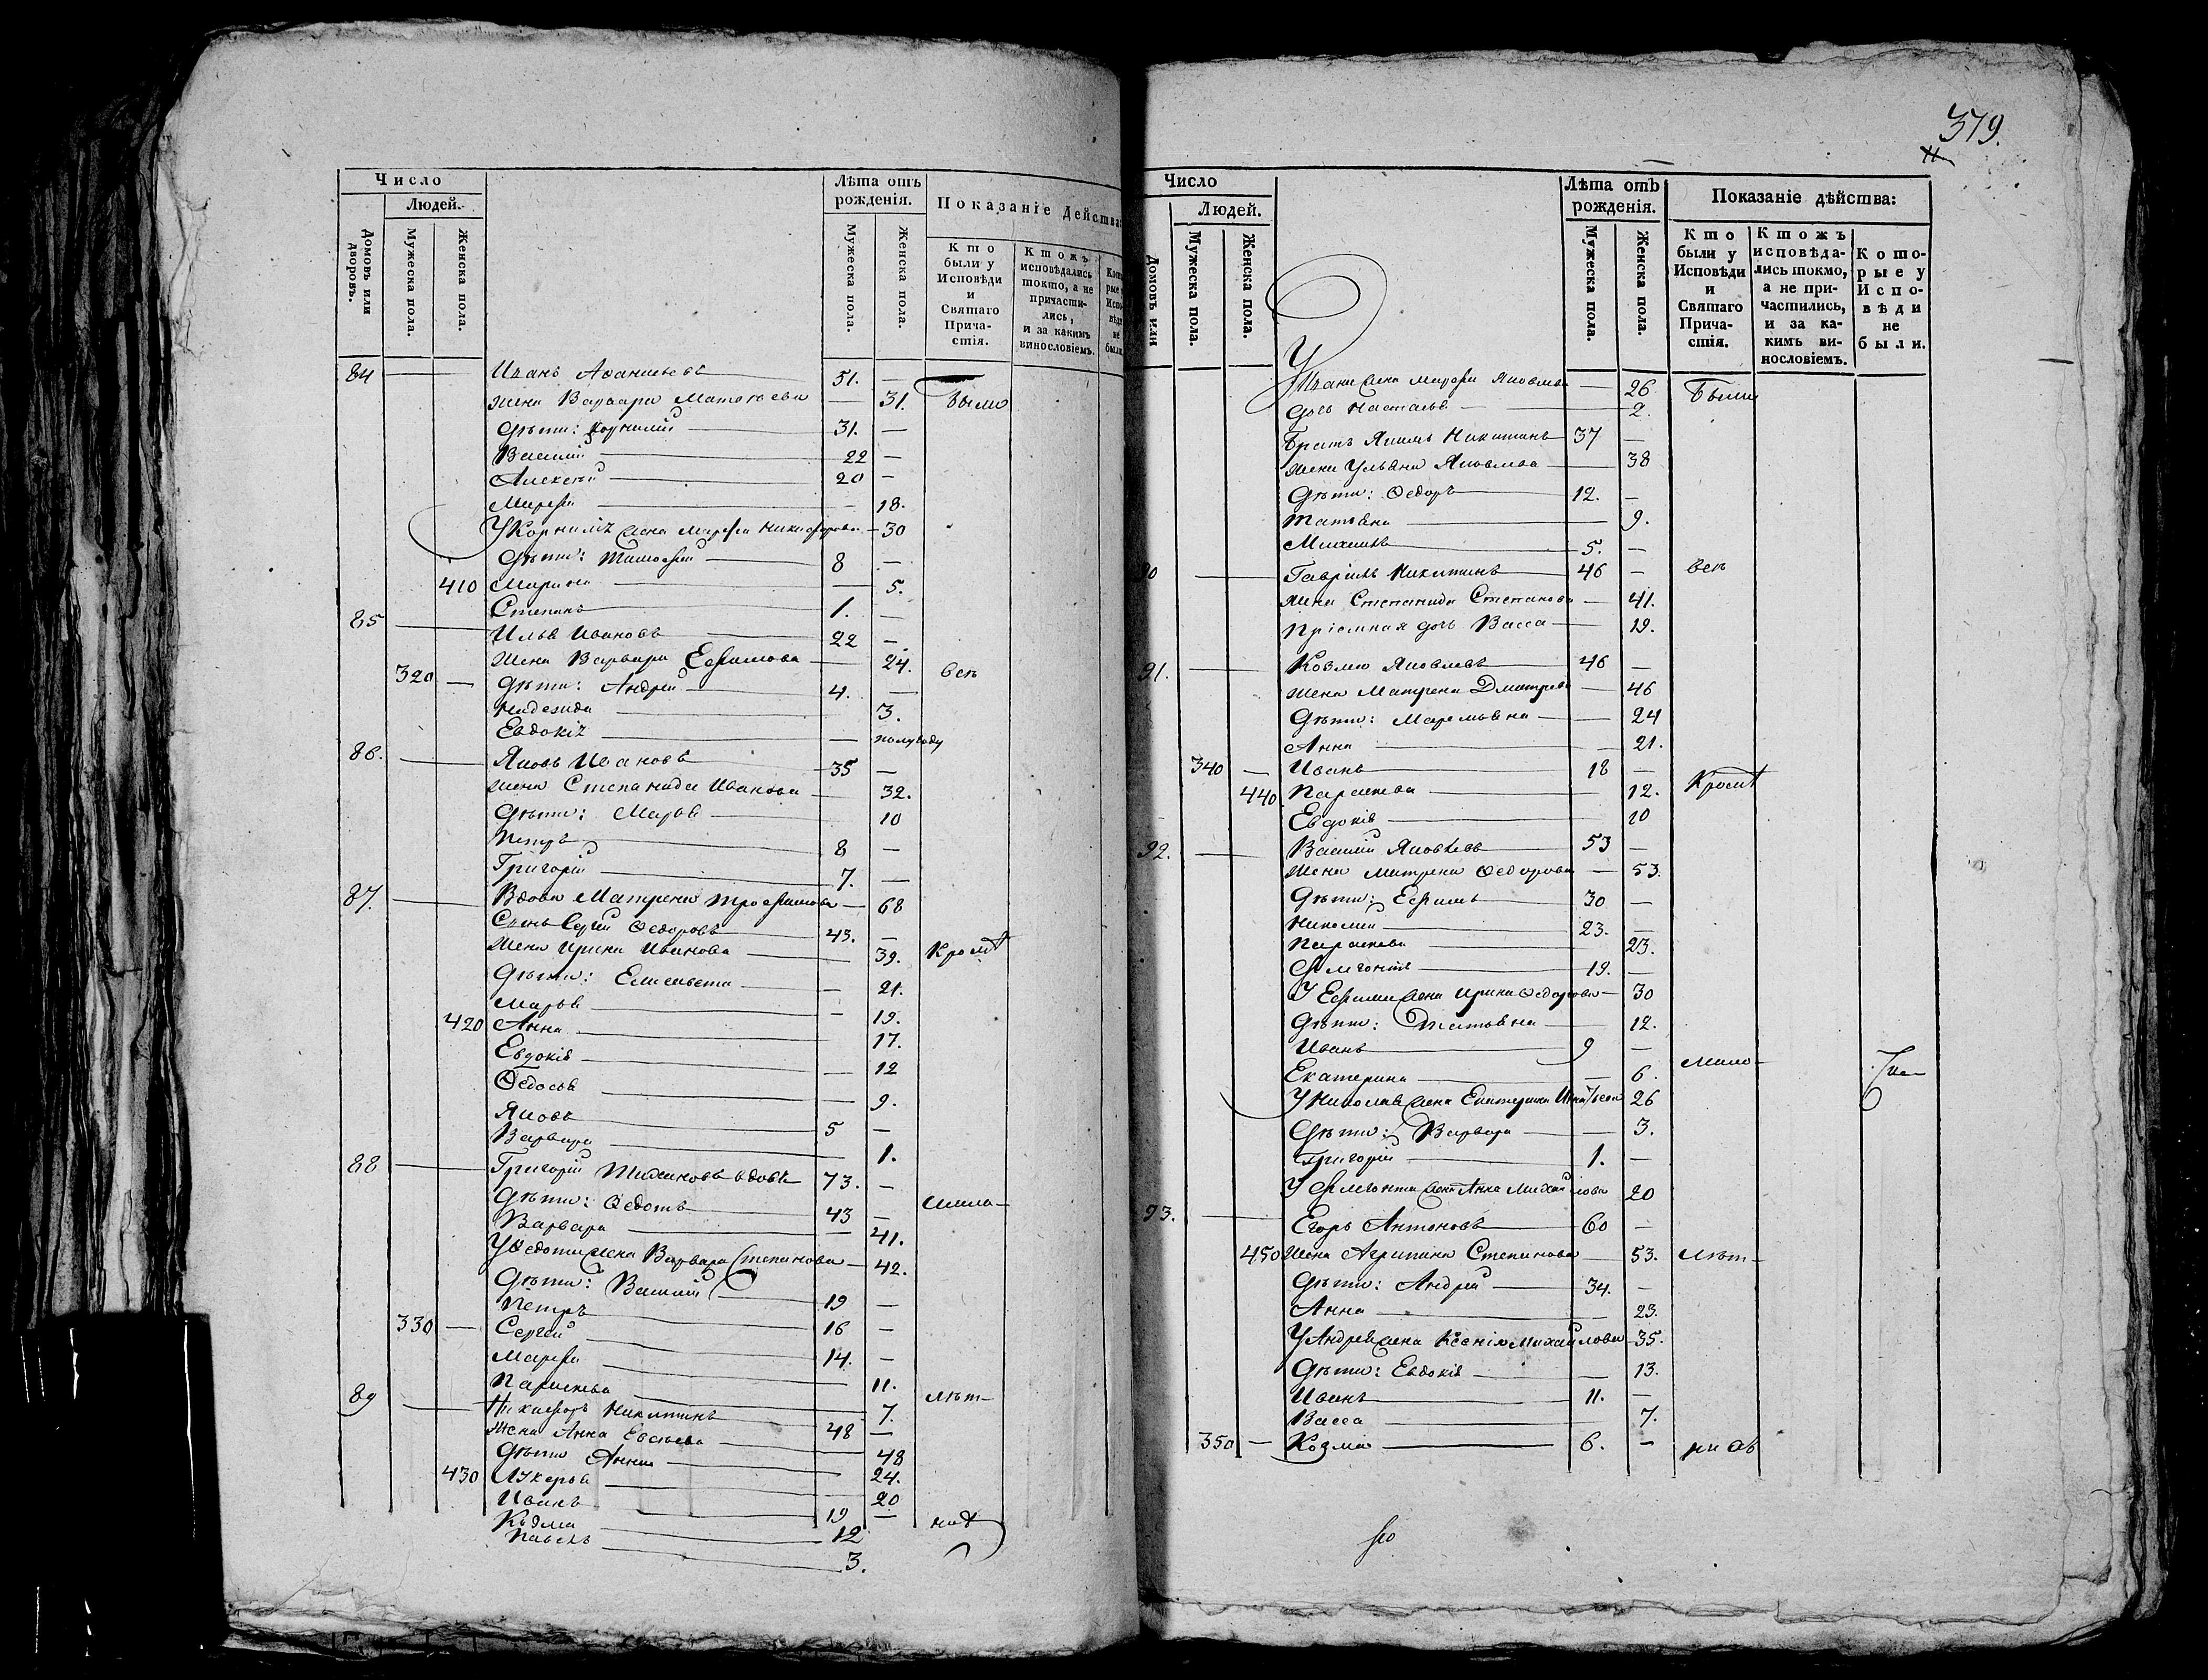 Число
Людей.
Домовъ или дворовъ.
Мужеска пола.
Женска пола.
Лѣта отъ рожденія.
Мужеска пола.
Женска пола.
Показаніе Дѣйства:
Кто были у Исповѣди и Святаго Причастія.
Ктожъ исповѣдались токто, а не причастились, и за какимъ винословіемъ.
84 — 51. —
жена Варвара — 31. были
дѣти: Корнилій — 31. —
Василій — 22 —
Алексѣй — 20 —
Марфа — 18.
У Корнилія жена Марфа — 30
дѣти: Тимофей — 8 —
410 Марина — 5.
Степанъ — 1. —
85 — Илья Ивановъ — 22 —
жена Варвара Ефимова — 24. всѣ
320 — дѣти: Андрей — 4. —
Надежда — 3.
Евдокія — полугоду
86. — Яковъ Ивановъ — 35 —
жена Степанида Иванова — 32.
дѣти: Марья — 10
Петръ — 8 —
Григорій — 7. —
87. — Вдова Матрена Трофимова — 68
Сынъ Сергій Ѳедоровъ — 43. —
жена Ирина Иванова — 39. Кромѣ
дѣти: Елисавета — 21.
Марья — 19.
420 Анна — 17.
Евдокія — 12
Ѳедосья — 9.
Яковъ — 5 —
Варвара — 1.
88 — Григорій Тихановъ вдовъ — 73. —
дѣти: Ѳедотъ — 43 — мало-
Варвара — 41.
У Ѳедота жена Варвара Степанова — 42.
дѣти: Василій — 19 —
Петръ — 16 —
330 — Сергей — 14. —
Марфа — 11.
Параскева — 7. лѣт-
89 — Никифоръ Никитинъ — 48 —
жена Анна — 48
дѣти Анна — 24.
430 Лукерья — 20
Иванъ — 19 —
Козма — 12
Павелъ — 3.
379.
Число
Людей.
Домовъ или
Мужеска пола.
Женска пола.
Лѣта отъ рожденія.
Мужеска пола.
Женска пола.
Показаніе дѣйства:
Кто были у Исповѣди и Святаго Причастія.
Ктожъ исповѣдались токмо, а не причастились, и за какимъ винословіемъ.
Которые у Исповѣди не были.
У Ивана жена Марфа Яковлева — 26 Были
дочь Наталья — 2.
Братъ Якимъ Никитинъ — 37 —
жена Ульяна Яковлева — 38
дѣти: Ѳедоръ — 12. —
Татьяна — 9.
Михаилъ — 5. —
90 — Гавріилъ Никитинъ — 46 — всѣ
жена Степанида Степанова — 41.
Пріемная дочь Васса — 19.
91. — Козма Яковлевъ — 46 —
жена Матрена Дмитрева — 46
дѣти: Маремьяна — 24
Анна — 21.
340 — Иванъ — 18 —
440 Параскева — 12. Кромѣ
Евдокія — 10
92. — Василій Яковлевъ — 53 —
жена Матрена Ѳедорова — 53.
дѣти: Ефимъ — 30 —
Николай — 23. —
Параскева — 23.
Флегонтъ — 19. —
У Ефима жена Ирина Ѳедорова — 30
дѣти: Татьяна — 12.
Иванъ — 9 —
Екатерина — 6. мало-
У Николая жена Екатерина — 26
дѣти: Варвара — 3.
Григорій — 1. —
У Флегонта жена Анна Михайлова 20
93. — Егоръ Антоновъ — 60 —
450 жена Агрипина Степанова — 53. лѣт-
дѣти: Андрей — 34. —
Анна — 23.
У Андрея жена Ксенія Михайлова — 35.
дѣти: Евдокія — 13.
Иванъ — 11. —
Васса — 7.
350 — Козма — 6. —